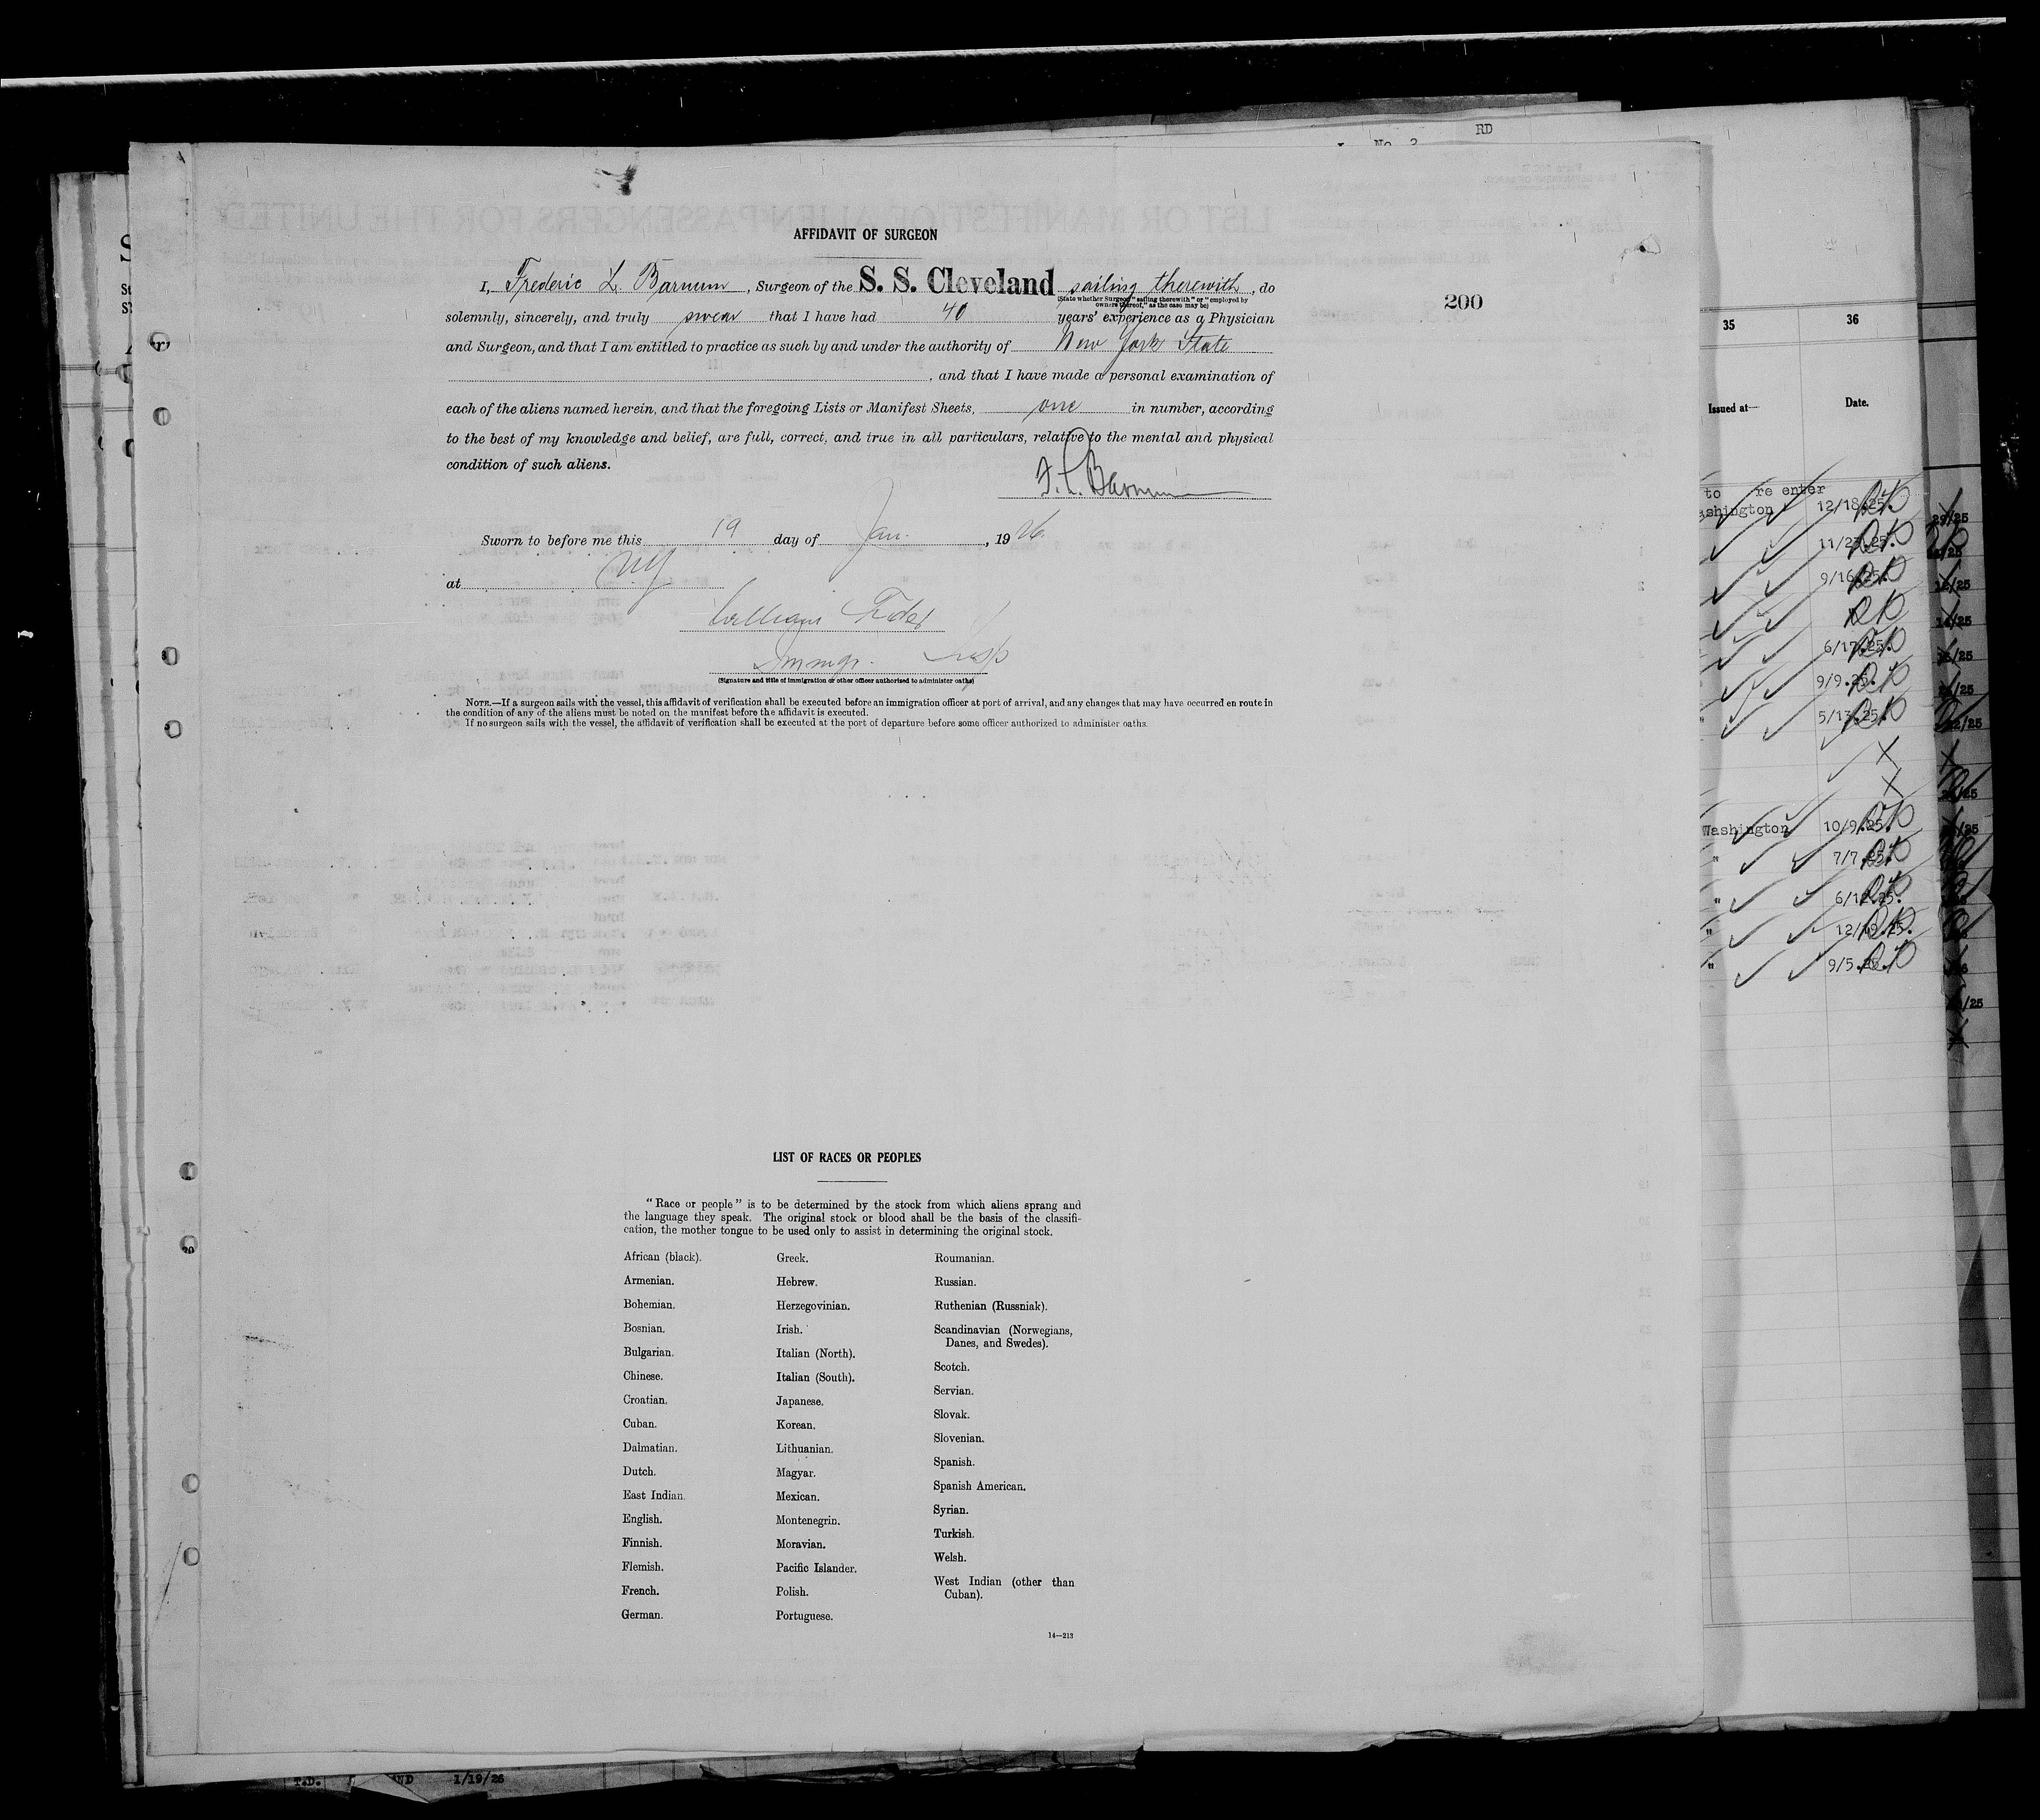 RD
No. 2
AFFIDAVIT OF SURGEON
I, Frederic L. Barnum, Surgeon of the S. S. Cleveland sailing therewith, do
(State whether Surgeon "sailing therewith" or "employed by
owners thereof," as the case may be)
200
solemnly, sincerely, and truly swear that I have had 40 years' experience as a Physician
and Surgeon, and that I am entitled to practice as such by and under the authority of New York State
, and that I have made a personal examination of
each of the aliens named herein, and that the foregoing Lists or Manifest Sheets, one in number, according
to the best of my knowledge and belief, are full, correct, and true in all particulars, relative to the mental and physical
condition of such aliens.
F. L. Barnum
Sworn to before me this 19 day of Jan., 1926
at NY
William
Immgr. Insp
(Signature and title of immigration or other officer authorized to administer oaths)
NOTE.—If a surgeon sails with the vessel, this affidavit of verification shall be executed before an immigration officer at port of arrival, and any changes that may have occurred en route in
the condition of any of the aliens must be noted on the manifest before the affidavit is executed.
If no surgeon sails with the vessel, the affidavit of verification shall be executed at the port of departure before some officer authorized to administer oaths.
LIST OF RACES OR PEOPLES
"Race or people" is to be determined by the stock from which aliens sprang and
the language they speak. The original stock or blood shall be the basis of the classifi-
cation, the mother tongue to be used only to assist in determining the original stock.
African (black).
Armenian.
Bohemian.
Bosnian.
Bulgarian.
Chinese.
Croatian.
Cuban.
Dalmatian.
Dutch.
East Indian.
English.
Finnish.
Flemish.
French.
German.
Greek.
Hebrew.
Herzegovinian.
Irish.
Italian (North).
Italian (South).
Japanese.
Korean.
Lithuanian.
Magyar.
Mexican.
Montenegrin.
Moravian.
Pacific Islander.
Polish.
Portuguese.
Roumanian.
Russian.
Ruthenian (Russniak).
Scandinavian (Norwegians,
Danes, and Swedes).
Scotch.
Servian.
Slovak.
Slovenian.
Spanish.
Spanish American.
Syrian.
Turkish.
Welsh.
West Indian (other than
Cuban).
14—213
35 36
Issued at— Date.
to re enter
ashington 12/18.25.
11/23.25.
9/16.25.
6/17.25.
9/9.25.
5/13.25.
Washington 10/9.25.
" 7/7.25.
" 6/12.25.
" 12/19.25.
" 9/5.25.
T.D. 1/19/26